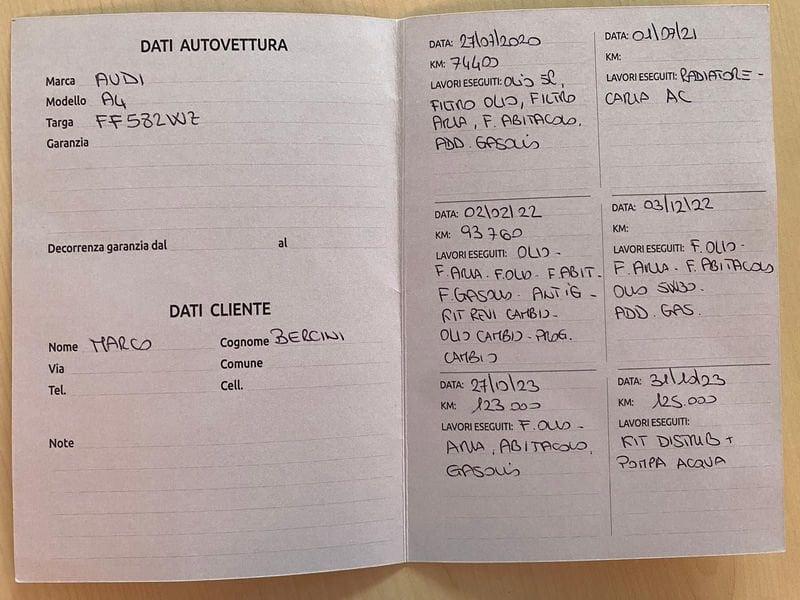 DATI AUTOVETTURA
Marca AUDI
Modello A4
Targa FF582WZ
Garanzia
Decorrenza garanzia dal al
DATI CLIENTE
Nome MARCO Cognome BERCINI
Via Comune
Tel. Cell.
Note
DATA: 27/07/2020
KM: 74400
LAVORI ESEGUITI: OLIO 5L,
FILTRO OLIO, FILTRO
ARIA, F. ABITACOLO,
ADD. GASOLIO
DATA: 01/07/21
KM:
LAVORI ESEGUITI: RADIATORE -
CARIA AC
DATA: 02/02/22
KM: 93760
LAVORI ESEGUITI: OLIO -
F. ARIA - F. OLIO - F. ABIT -
F. GASOLIO - ANTIG -
KIT REVI CAMBIO -
OLIO CAMBIO - PROG.
CAMBIO
DATA: 03/12/22
KM:
LAVORI ESEGUITI: F. OLIO -
F. ARIA - F. ABITACOLO
OLIO 5W30 -
ADD. GAS.
DATA: 27/10/23
KM: 123.000
LAVORI ESEGUITI: F. OLIO -
ARIA, ABITACOLO,
GASOLIO
DATA: 31/10/23
KM: 125.000
LAVORI ESEGUITI:
KIT DISTRIB +
POMPA ACQUA